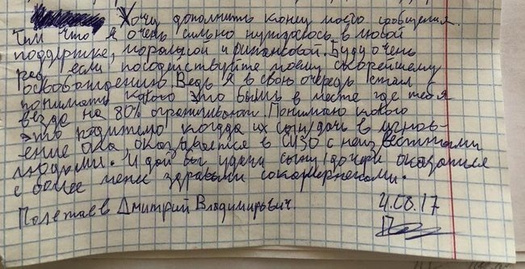 Хочу дополнить конец моего сообщения.
Тем что я очень сильно нуждаюсь в любой
поддержке, моральной и финансовой. Буду очень
рад если посодействуете моему скорейшему
освобождению. Ведь я в свою очередь стал
понимать какого это быть в месте где тебя
везде на 80% ограничивают. Понимаю какого
это родителю когда их сын/дочь в мгнов-
ение ока оказывается в СИЗО с неизвестными
людьми. И дай бог удачи сыну/дочери оказаться
с более менее здравыми сокамерниками.
Полетаев Дмитрий Владимирович 4.08.17